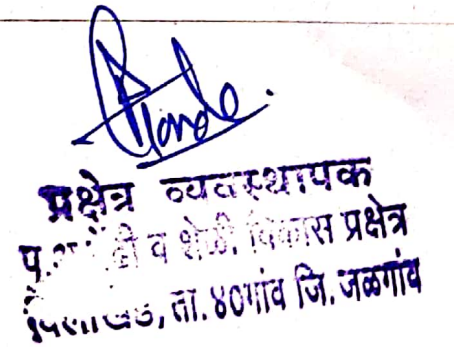 प्रक्षेत्र व्यवस्थापक
व शेळी विकास प्रक्षेत्र
ता. ४०गांव जि. जळगांव